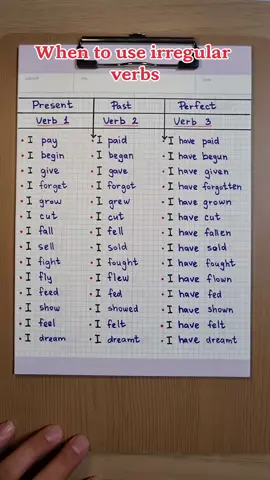 When to use irregular
verbs
Present Past Perfect
Verb 1 Verb 2 Verb 3
I pay I paid I have paid
I begin I began I have begun
I give I gave I have given
I forget I forgot I have forgotten
I grow I grew I have grown
I cut I cut I have cut
I fall I fell I have fallen
I sell I sold I have sold
I fight I fought I have fought
I fly I flew I have flown
I feed I fed I have fed
I show I showed I have shown
I feel I felt I have felt
I dream I dreamt I have dreamt